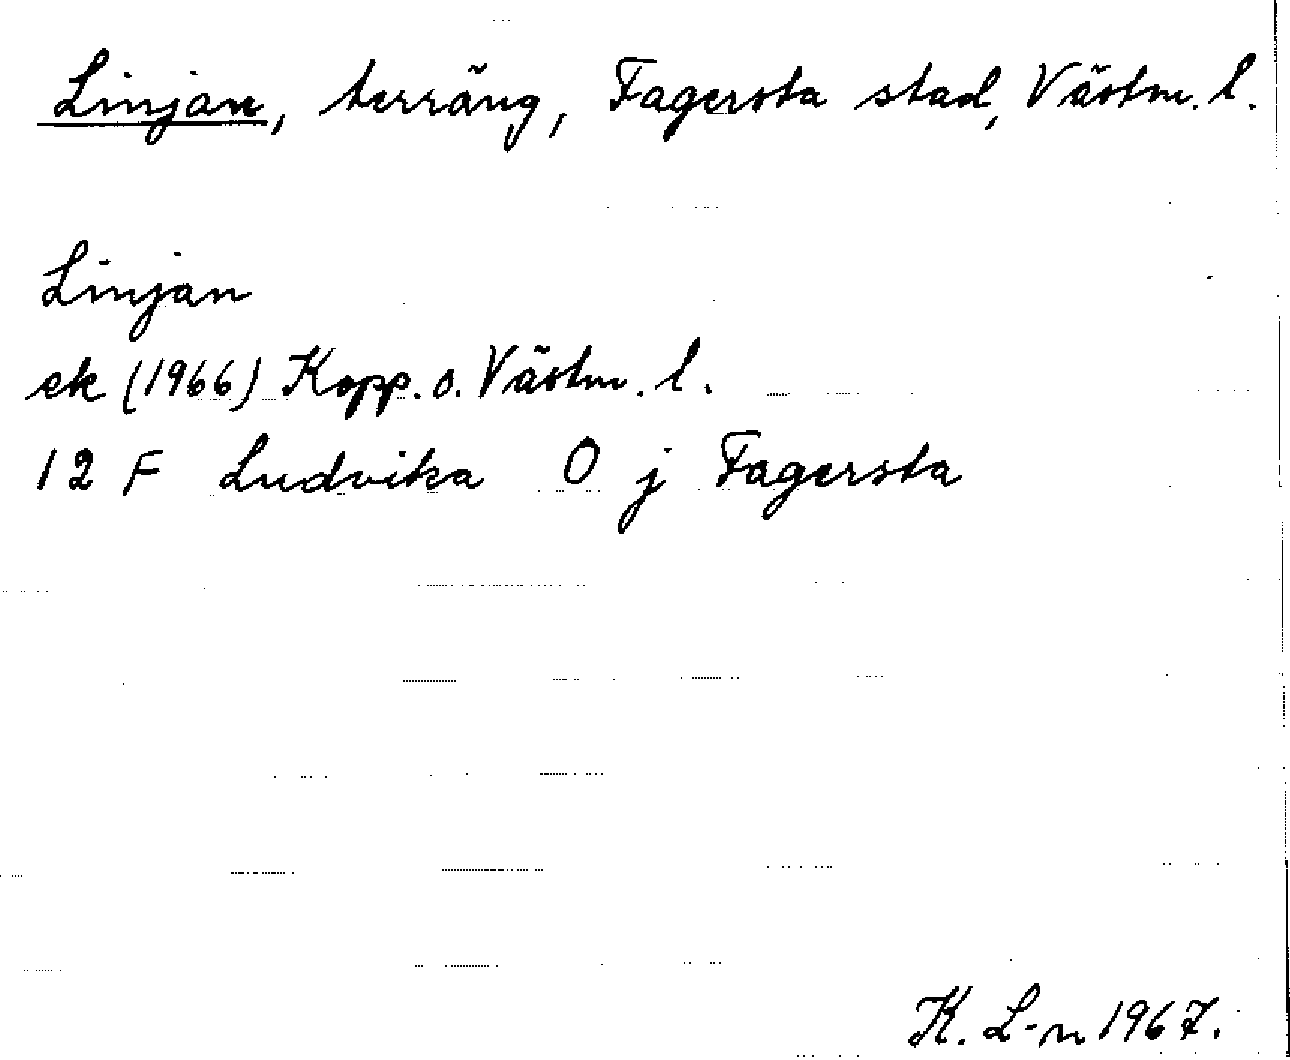 Linjan, terräng, Fagersta stad, Västm. l.
Linjan
ek (1966) Kopp. o. Västm. l.
12 F Ludvika O j Fagersta
K. L-n 1967.